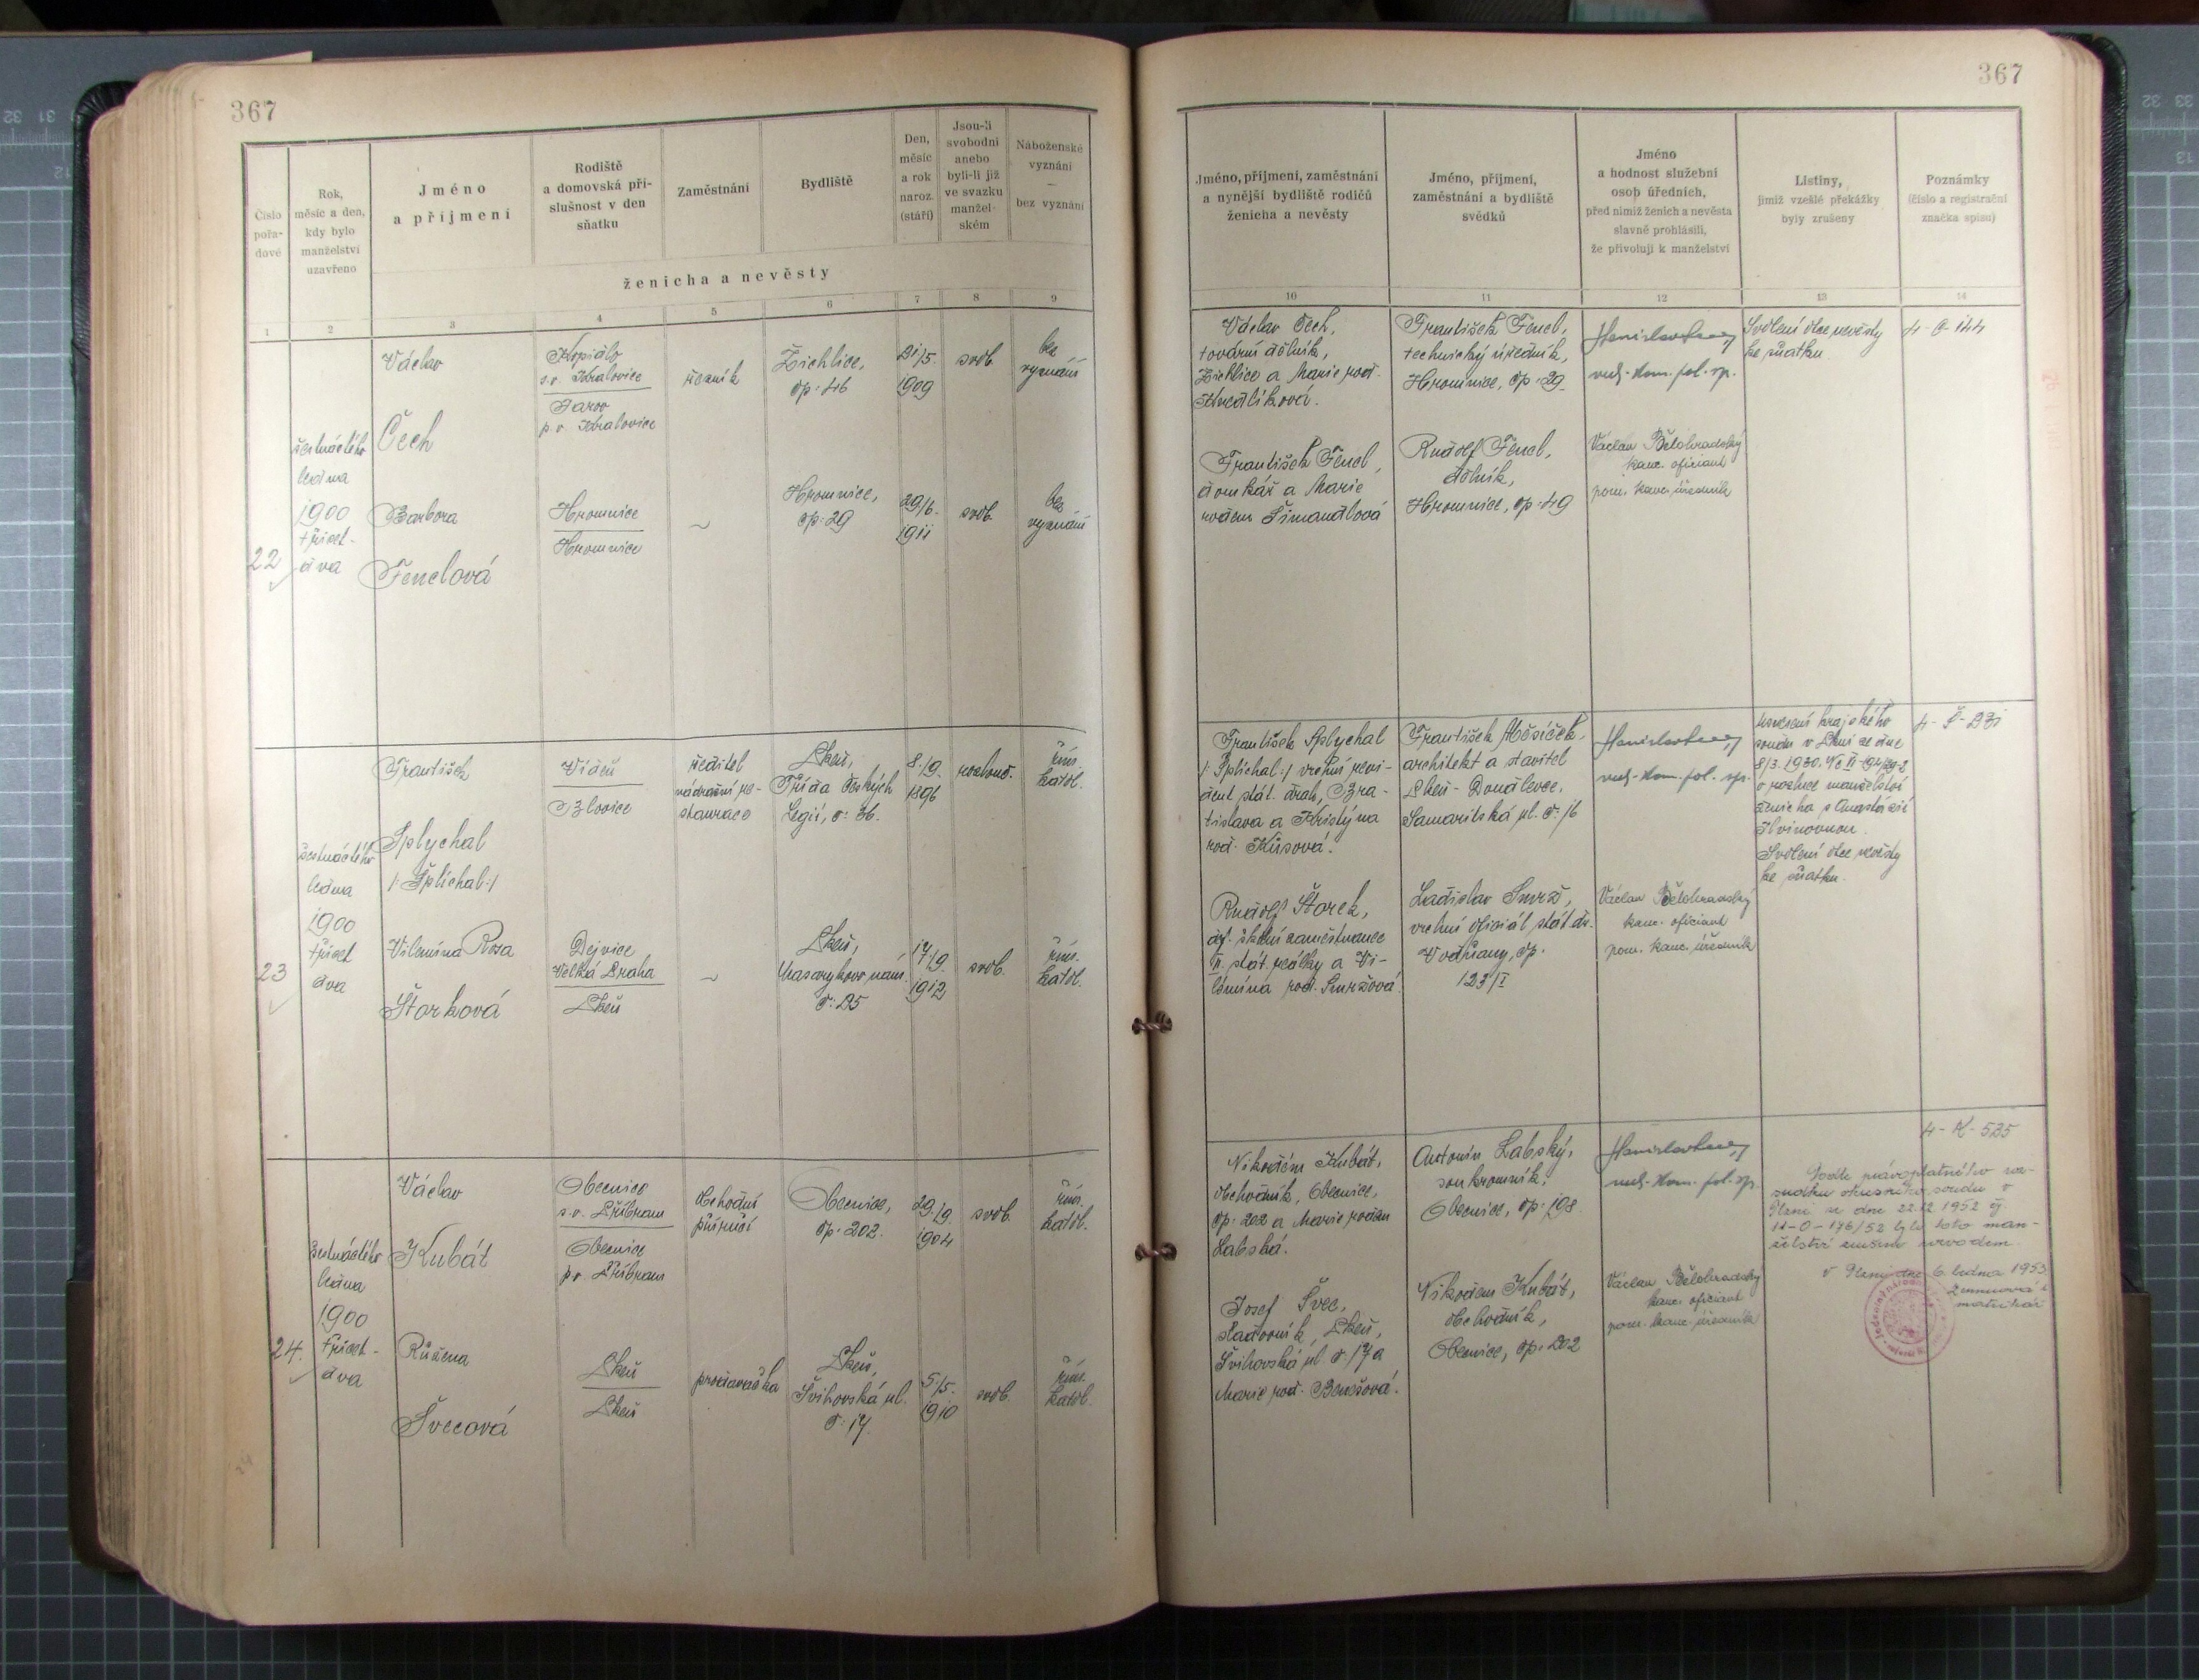 367
Číslo pořa- dové
Rok, měsíc a den, kdy bylo manželství uzavřeno
Jméno a příjmení
Rodiště a domovská pří- slušnost v den sňatku
Zaměstnání
Bydliště
Den, měsíc a rok naroz. (stáří)
Jsou-li svobodni anebo byli-li již ve svazku manžel- ském
Náboženské vyznání — bez vyznání
ženicha a nevěsty
1 2 3 4 5 6 7 8 9
22
šestnáctého
ledna
1900
třicet-
dva
Václav
Čech
Kopidlo
s.o. Kralovice
Jarov
p.o. Kralovice
řezník
Žichlice,
čp: 46
21/5.
1909
svob.
bez
vyznání
Barbora
Fenclová
Hromnice
Hromnice
~
Hromnice,
čp: 29
29/6.
1911
svob.
bez
vyznání
23
šestnáctého
ledna
1900
třicet
dva
František
Splychal
/: Šplíchal :/
Vídeň
Bzlovice
ředitel
nádražní re-
staurace
Plzeň,
Třída Českých
Legií, č: 36.
8./9.
1896
rozlouč.
řím.
katol.
Vilemína Rosa
Štorková
Dejvice
Velká Praha
Plzeň
~
Plzeň,
Masarykovo nám.
č: 25
17/9.
1912
svob.
řím.
katol.
24.
šestnáctého
ledna
1900
třicet-
dva
Václav
Kubát
Obecnice
s.o. Příbram
Obecnice
p.o. Příbram
obchodní
příručí
Obecnice,
čp: 202.
29./9.
1904
svob.
řím.
katol.
Růžena
Švecová
Plzeň
Plzeň
prodavačka
Plzeň,
Švihovská ul.
č: 17.
5/5.
1910
svob.
řím.
katol.
367
Jméno, příjmení, zaměstnání a nynější bydliště rodičů ženicha a nevěsty
Jméno, příjmení, zaměstnání a bydliště svědků
Jméno a hodnost služební osob úředních, před nimiž ženich a nevěsta slavně prohlásili, že přivolují k manželství
Listiny, jimiž vzešlé překážky byly zrušeny
Poznámky (číslo a registrační značka spisu)
10 11 12 13 14
Václav Čech,
tovární dělník,
Žichlice a Marie roz.
Knedlíková.
František Fencl,
domkář a Marie
rozen Šimandlová
František Fencl,
technický úředník,
Hromnice, čp: 29.
Rudolf Fencl,
dělník,
Hromnice, čp: 49
vrch. kom. pol. sp.
Václav Bělohradský
kanc. oficiant
pom. kanc. úředník
Svolení otce nevěsty
ke sňatku.
4-Č-144
František Splychal
/: Šplíchal :/ vrchní revi-
dent stát. drah, Bra-
tislava a Kristýna
roz. Kůsová.
Rudolf Štorek,
def. školní zaměstnanec
II. stát. reálky a Vi-
lémína roz. Smržová.
František Měsíček,
architekt a stavitel
Plzeň - Doudlevce,
Samaritská ul. č: 16
Ladislav Smrž,
vrchní oficiál stát. dr.
Vodňany, čp.
123/I
vrch. kom. pol. sp.
Václav Bělohradský
kanc. oficiant
pom. kanc. úředník
Usnesení krajského
soudu v Plzni ze dne
8/3. 1930.
o rozluce manželství
ženicha s Anastázií
Svolení otce nevěsty
ke sňatku.
4-Š-231
Nikodém Kubát,
obchodník, Obecnice,
čp: 202 a Marie rozen
Labská.
Josef Švec,
sladovník, Plzeň,
Švihovská ul. č: 17 a
Marie roz. Benešová.
Antonín Labský,
soukromník,
Obecnice, čp: 198.
Nikodem Kubát,
obchodník,
Obecnice, čp: 202
vrch. kom. pol. sp.
Václav Bělohradský
kanc. oficiant
pom. kanc. úředník
4-K-525
Podle právoplatného roz-
sudku okresního soudu v
Plzni ze dne 22.12 1952 čj.
11-O-176/52 bylo toto man-
želství zrušeno rozvodem.
V Plzni dne 6. ledna 1953
matrikář